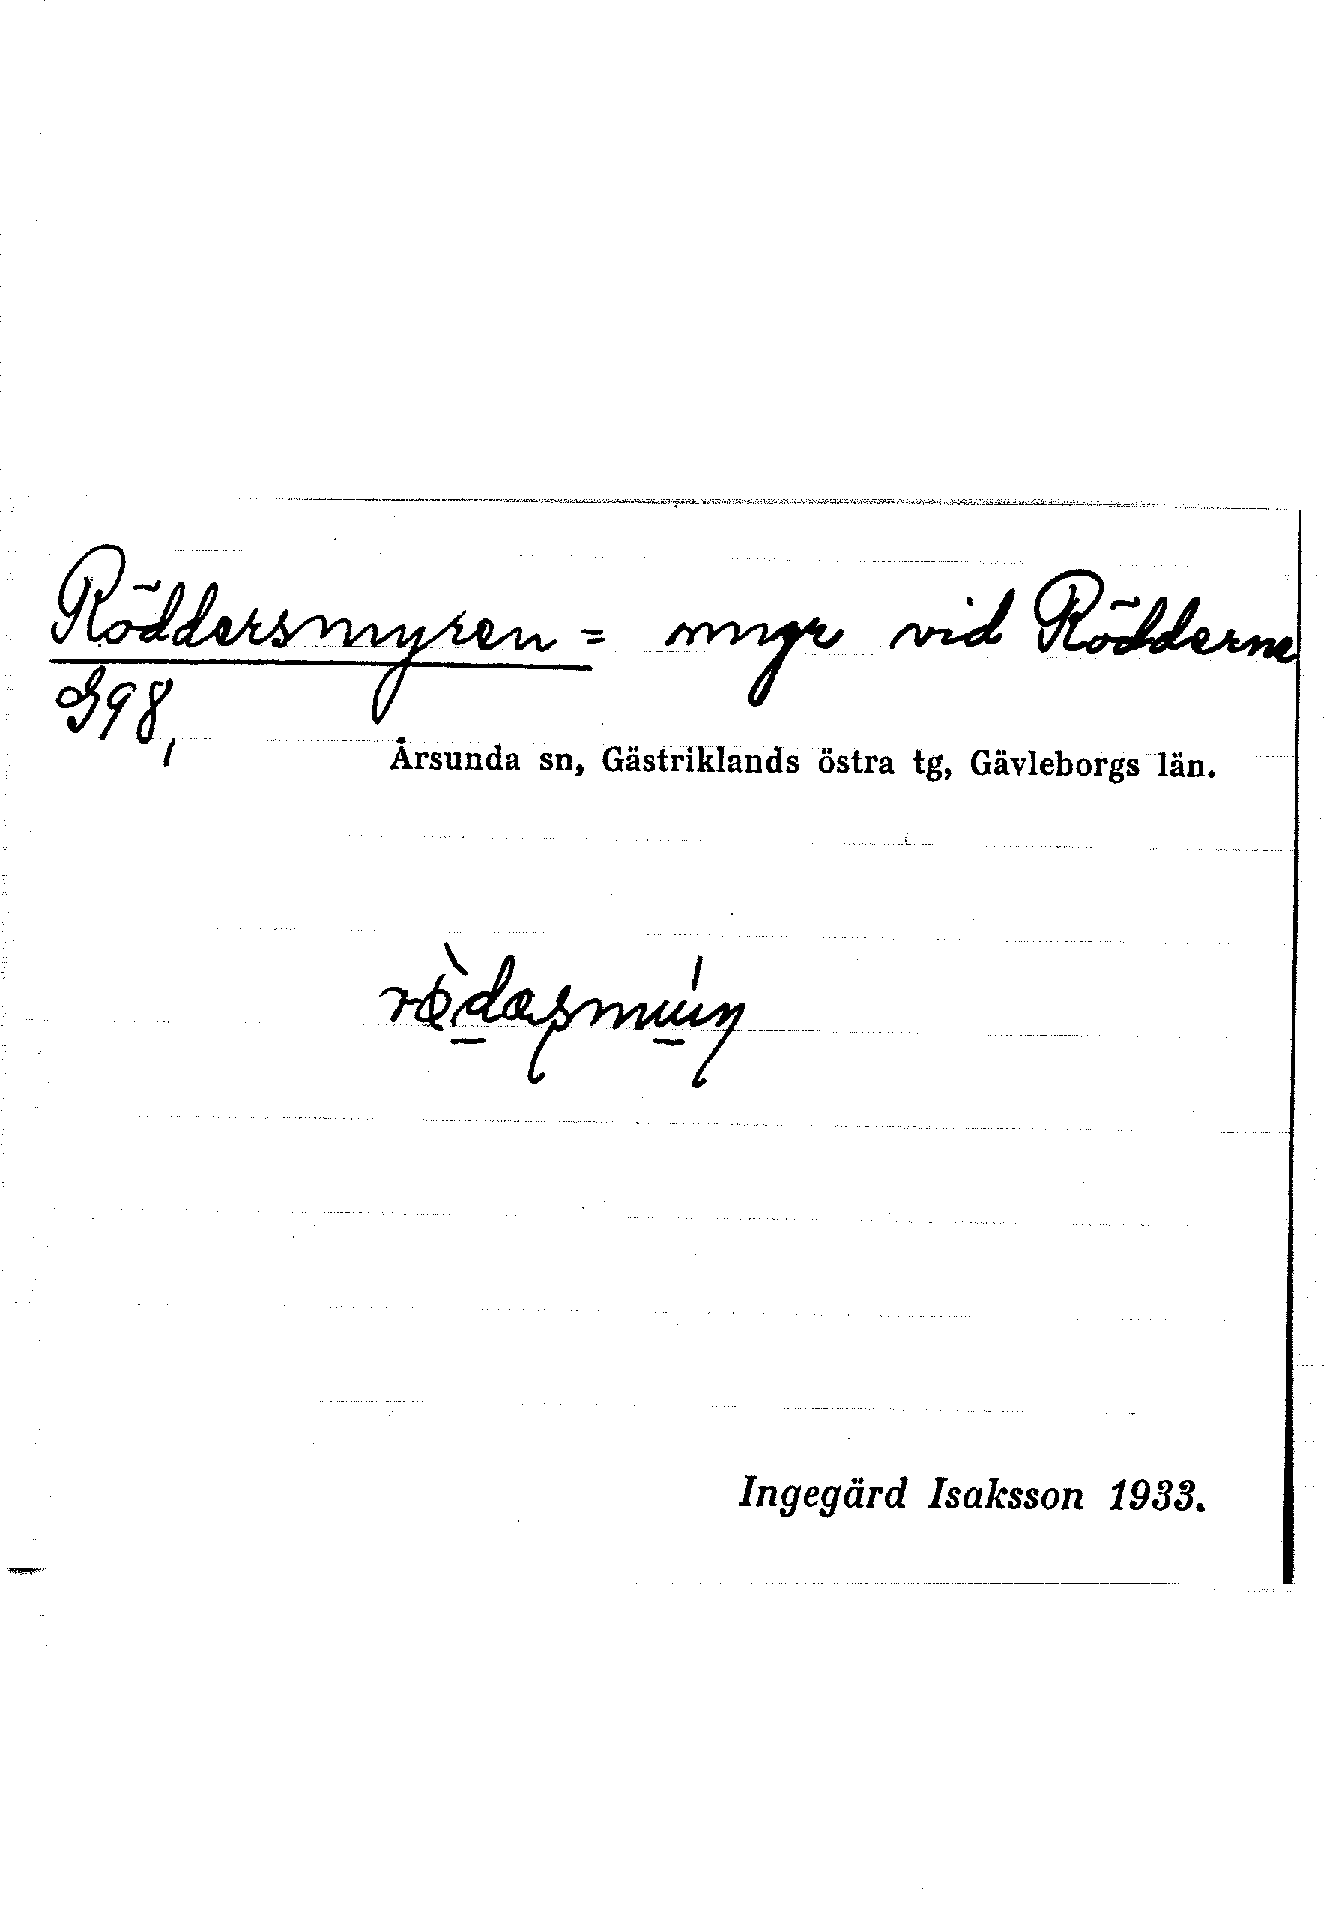 Röddersmyren = myr vid Rödderne
G98,
Årsunda sn, Gästriklands östra tg, Gävleborgs län.
Ingegärd Isaksson 1933.